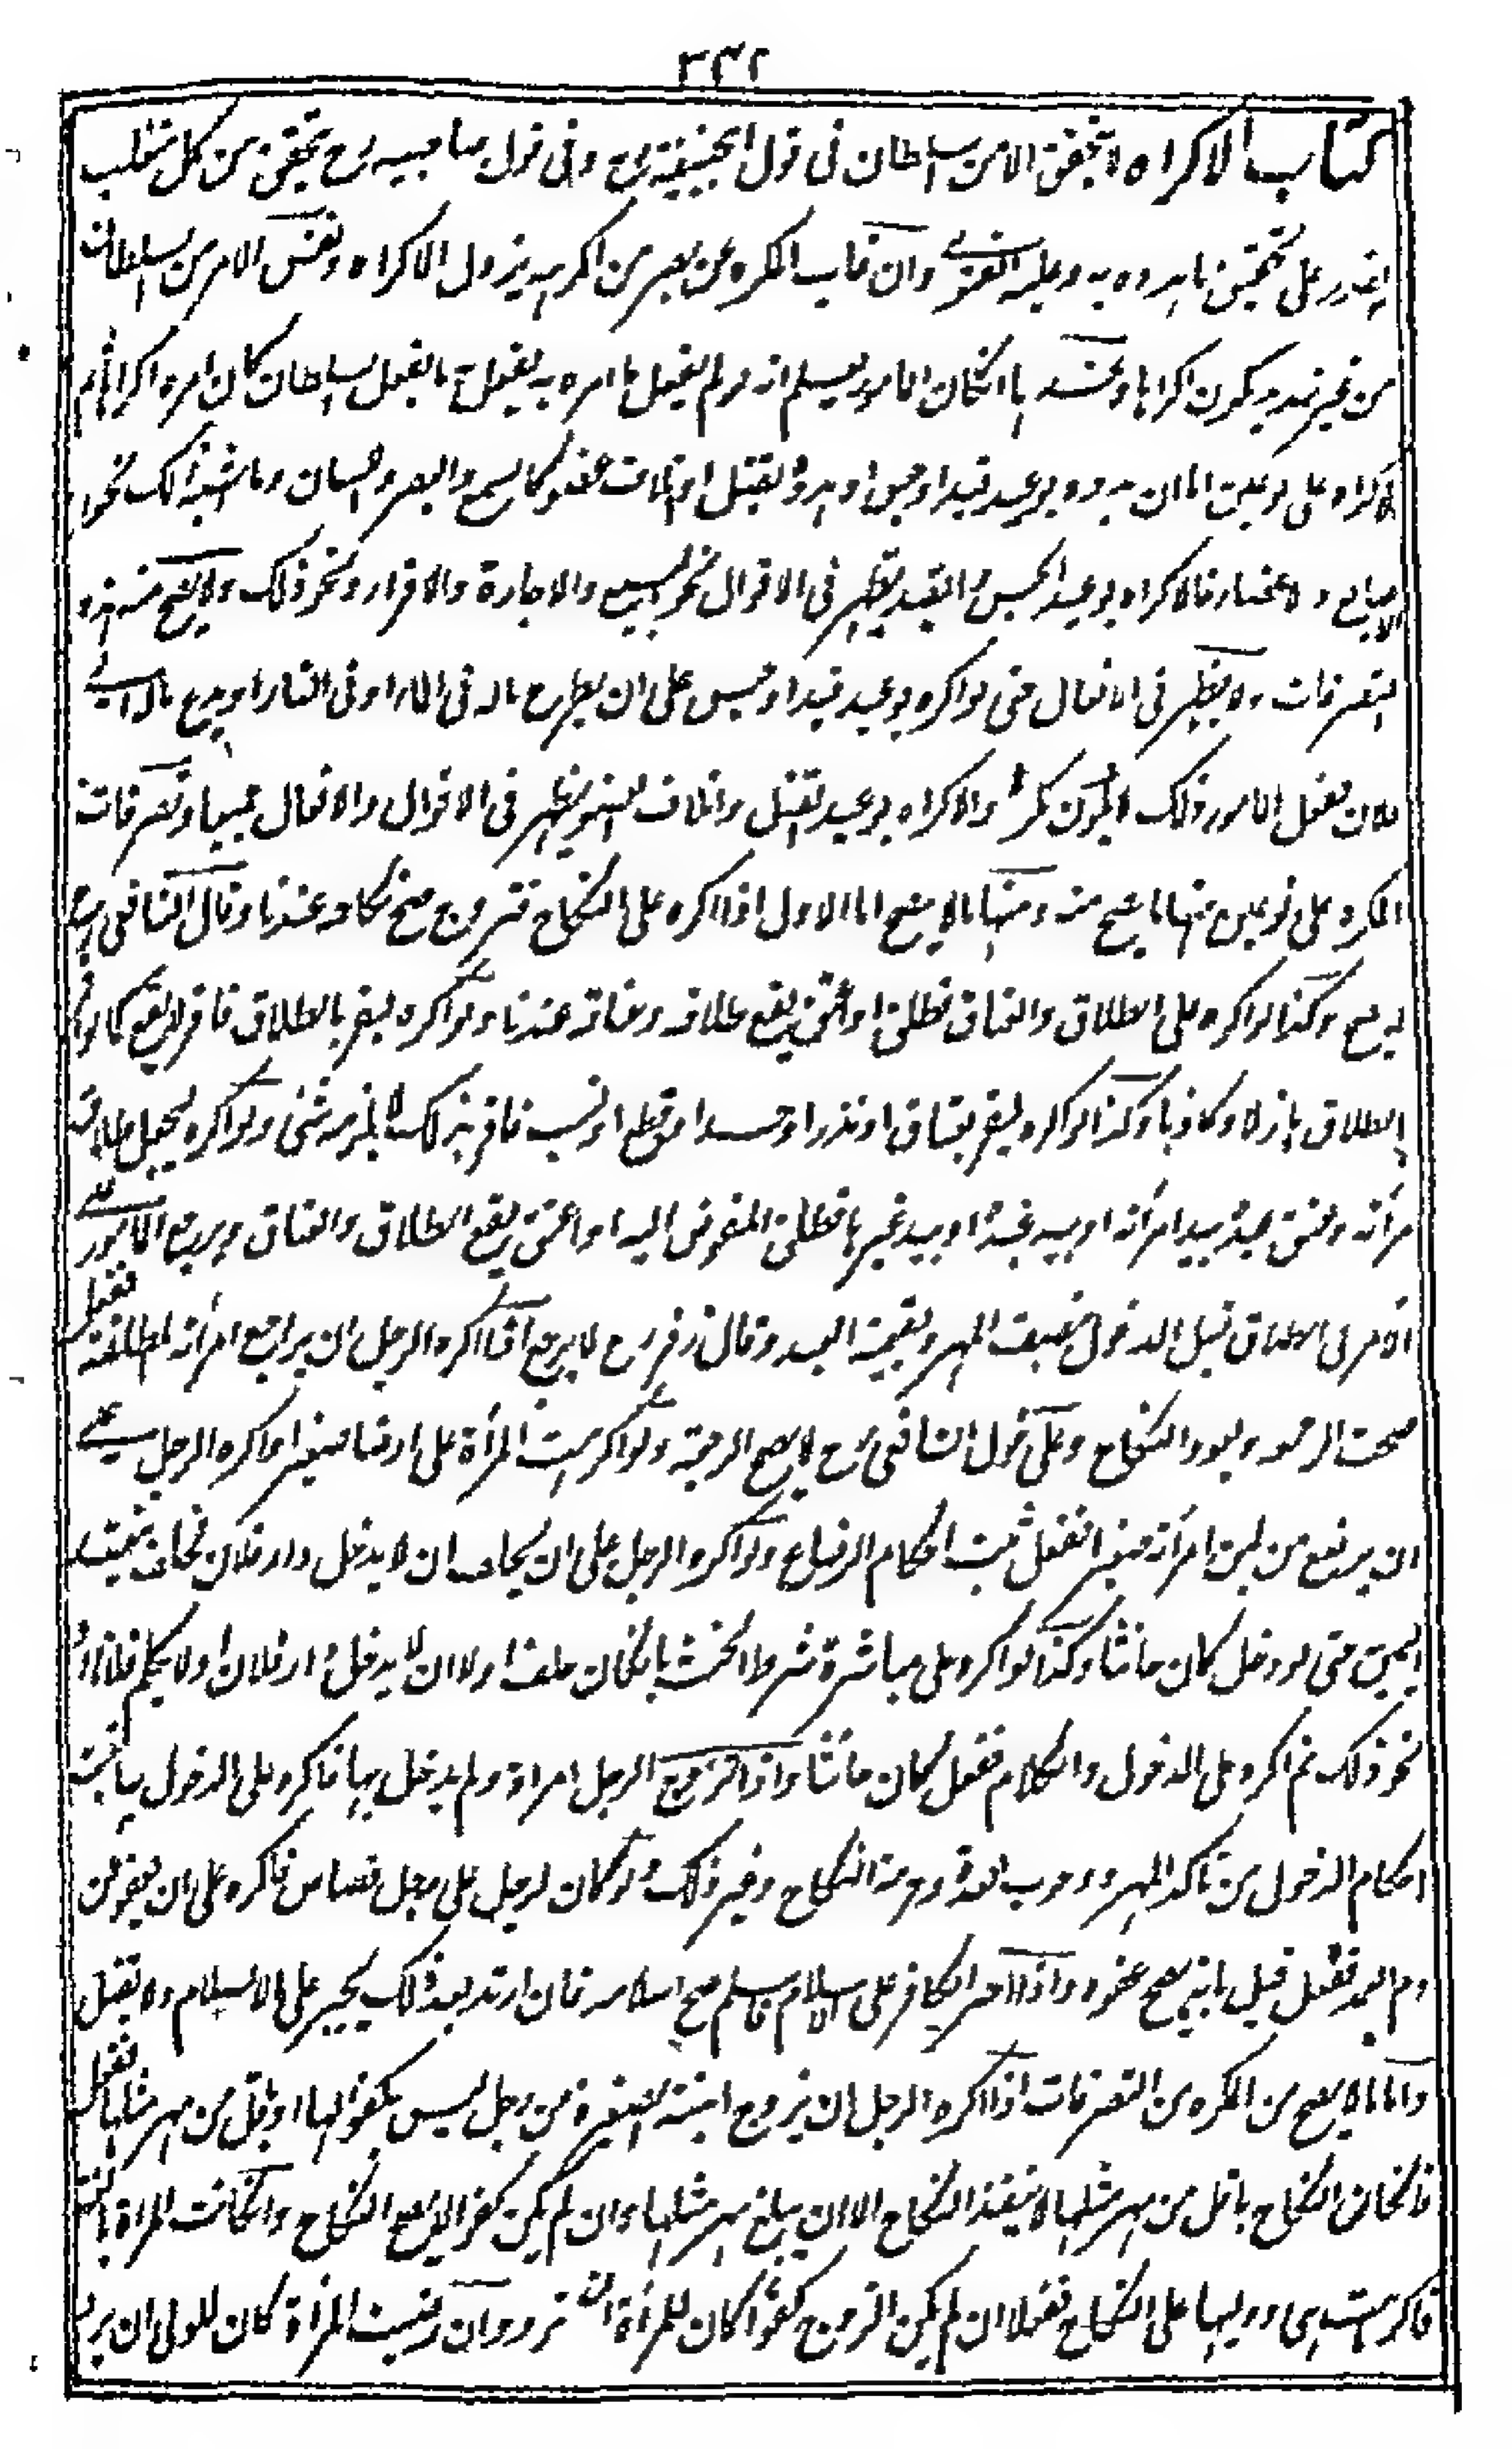 ٣٤٢
كتاب الاكراه لا يتحقق الا من سلطان فى قول ابيحنيفة رح وفى قول صاحبيه رح يتحقق من كل متغلب
يقدر على تحقيق ما هدده به وعليه الفتوى وان غاب المكره عن بصر من اكرهه يزول الاكراه ونفس الامر من السلطان
من غير تهديد يكون اكراها وعندهما انكان المامور يعلم انه لو لم يفعل ما امره به يفعل به ما يفعل السلطان كان امره اكراها ثم
الاكراه على نوعين اما ان هدده بوعيد قيد او حبس او هدده بقتل او اتلاف عضو كالسمع والبصر واللسان وما اشبه ذلك نحو
الاصابع و فالاكراه بوعيد الحبس والقيد يظهر فى الاقوال نحو البيع والاجارة والاقرار ونحو ذلك ولا يصح منه هذه
التصرفات ولا يظهر فى الافعال حتى لو اكره بوعيد قيد او حبس على ان يطرح ماله فى الماء او فى النار او يدفع ماله الى
فلان ففعل المامور ذلك لا يكون مكرها والاكراه بوعيد القتل واتلاف العضو يظهر فى الاقوال والافعال جميعا وتصرفات
المكره على نوعين منها ما يصح منه ومنها ما لا يصح اما الاول اذا اكره على النكاح فتزوج صح نكاحه عندنا وقال الشافعى رح
لا يصح وكذا لو اكره على الطلاق والعتاق فطلق او اعتق يقع طلاقه وعتاقه عندنا ولو اكره ليقر بالطلاق فاقر لا يقع كما لو اقر
بالطلاق هازلا او كاذبا وكذا لو اكره ليقر بعتاق او نذر او حد او قطع او نسب فاقر بذلك لا يلزمه شئ ولو اكره ليجعل طلاق
امرأته وعتق عبده بيد امرأته او بيد عبده او بيد غيرها فطلق المفوض اليه او اعتق يقع الطلاق والعتاق ويرجع المامور على
الآمر فى الطلاق قبل الدخول بنصف المهر وبقيمة العبد وقال زفر رح لا يرجع اذا اكره الرجل ان يراجع امرأته المطلقة ففعل
صحت الرجعة ويعود النكاح وعلى قول الشافعى رح لا يصح الرجعة ولو اكرهت المرأة على ارضاع صغير او اكره الرجل على
ان يرضع من لبن امرأته صغيرا ففعل ثبت احكام الرضاع ولو اكره الرجل على ان يحلف ان لا يدخل دار فلان فحلف ينعقد
اليمين حتى لو دخل كان حانثا وكذا لو اكره على مباشرة شرط الحنث بانكان حلف اولا ان لا يدخل دار فلان او لا يكلم فلانا او
نحو ذلك ثم اكره على الدخول والكلام ففعل كان حانثا واذا تزوج الرجل امراة ولم يدخل بها فاكره على الدخول بها يثبت
احكام الدخول من تاكد المهر ووجوب العدة وحرمة النكاح وغير ذلك ولو كان لرجل على رجل قصاص فاكره على ان يعفو عن
دم العمد ففعل قيل بانه يصح عفوه واذا اجبر الكافر على الاسلام فاسلم صح اسلامه فان ارتد بعد ذلك يجبر على الاسلام ولا يقتل
واما ما لا يصح من المكره من التصرفات اذا اكره الرجل ان يزوج ابنته الصغيرة من رجل ليس بكفو لها او باقل من مهر مثلها ففعل
فانكان النكاح باقل من مهر مثلها لا ينفذ النكاح الا ان يبلغ مهر مثلها وان لم يكن كفوا لا يصح النكاح وانكانت المراة بالغة
فاكرهت هى ووليها على النكاح ففعلا ان لم يكن الزوج كفوا كان للمرأة ان ترده وان رضيت المرأة كان للولى ان يرد